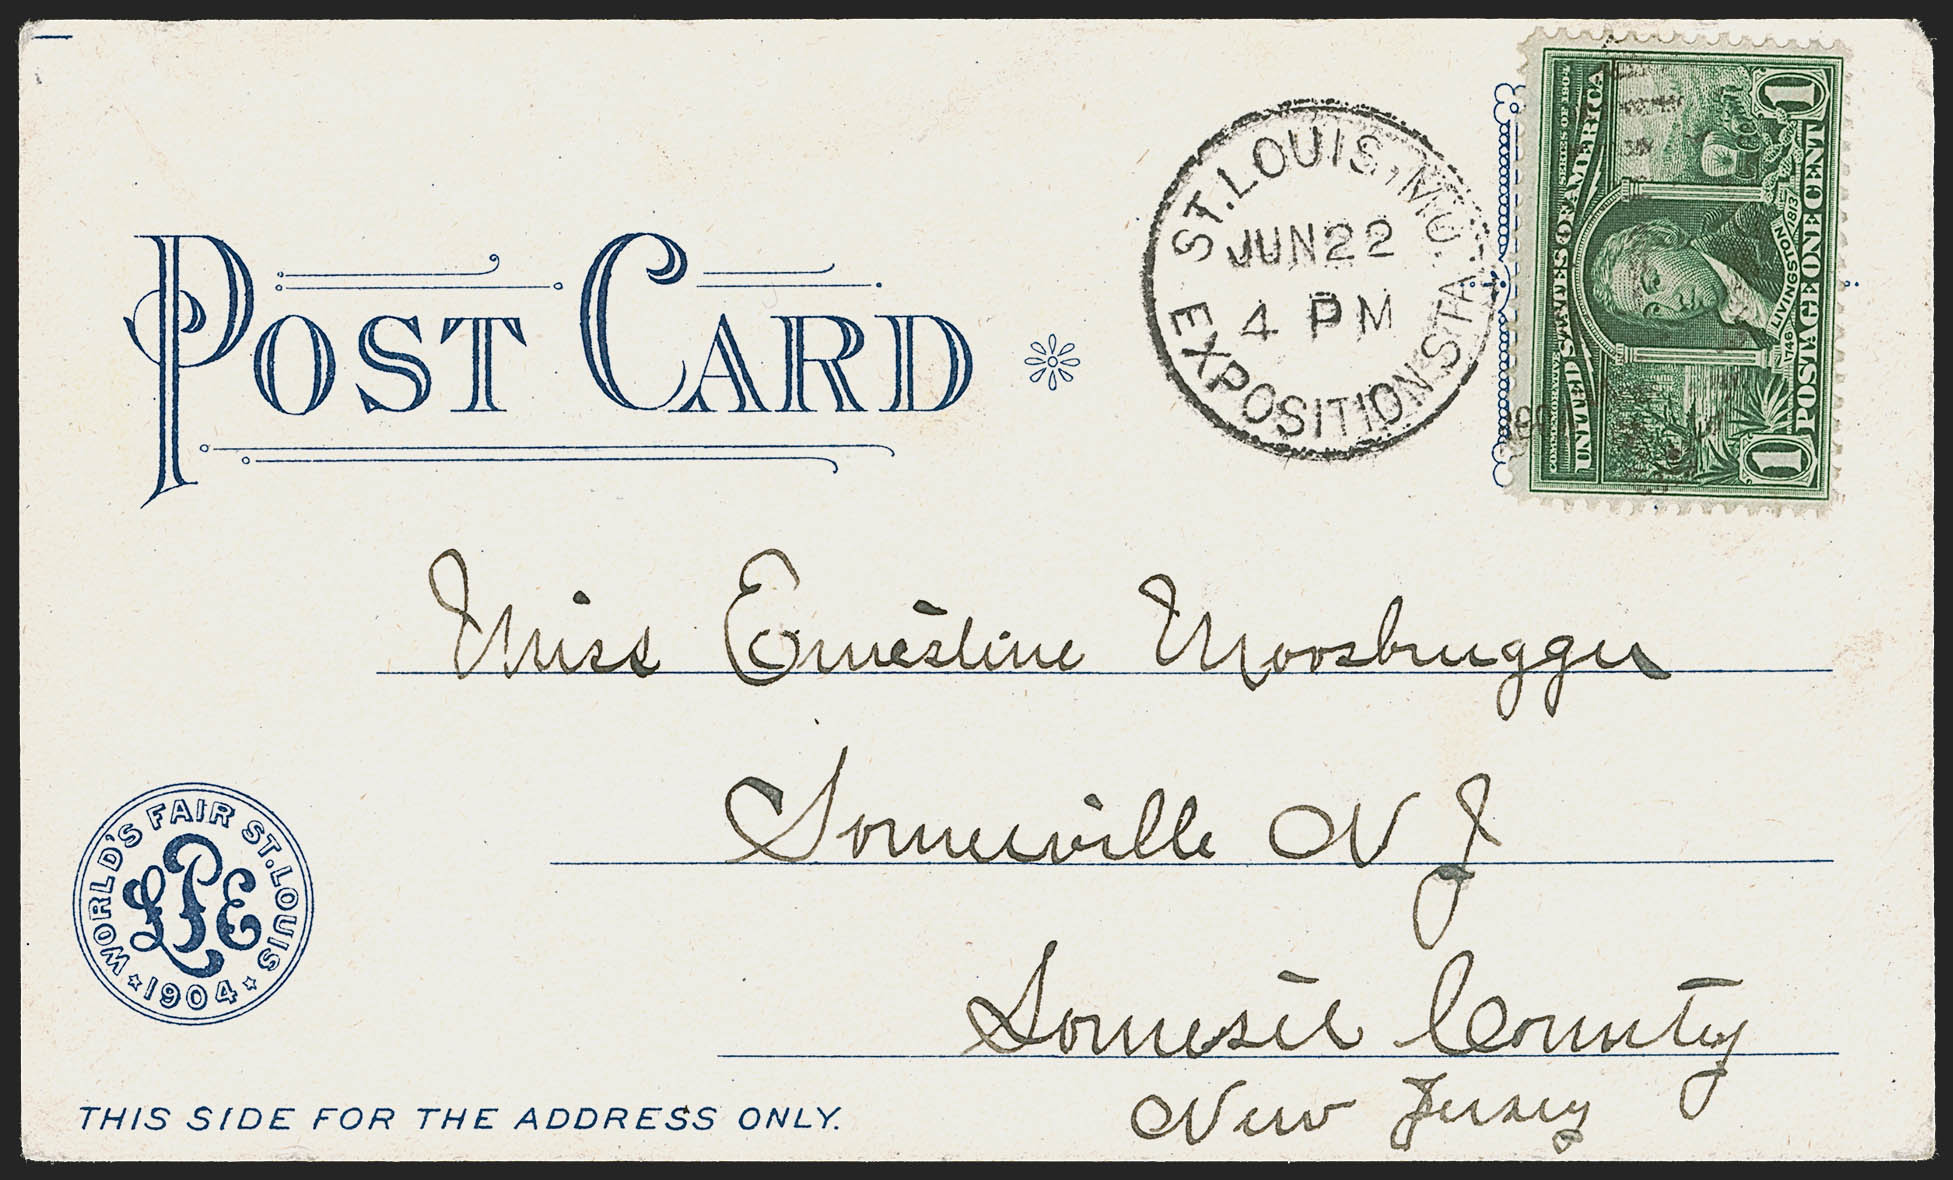 POST CARD
ST. LOUIS, MO.
JUN 22
4 PM
EXPOSITION STA.
1 POSTAGE ONE CENT 1
1746 LIVINGSTON 1813
UNITED STATES OF AMERICA
SERIES OF 1904
Miss Ernestine Moosbrugger
Somerville N J
Somerset County
New Jersey
WORLD'S FAIR ST. LOUIS
LPE
1904
THIS SIDE FOR THE ADDRESS ONLY.